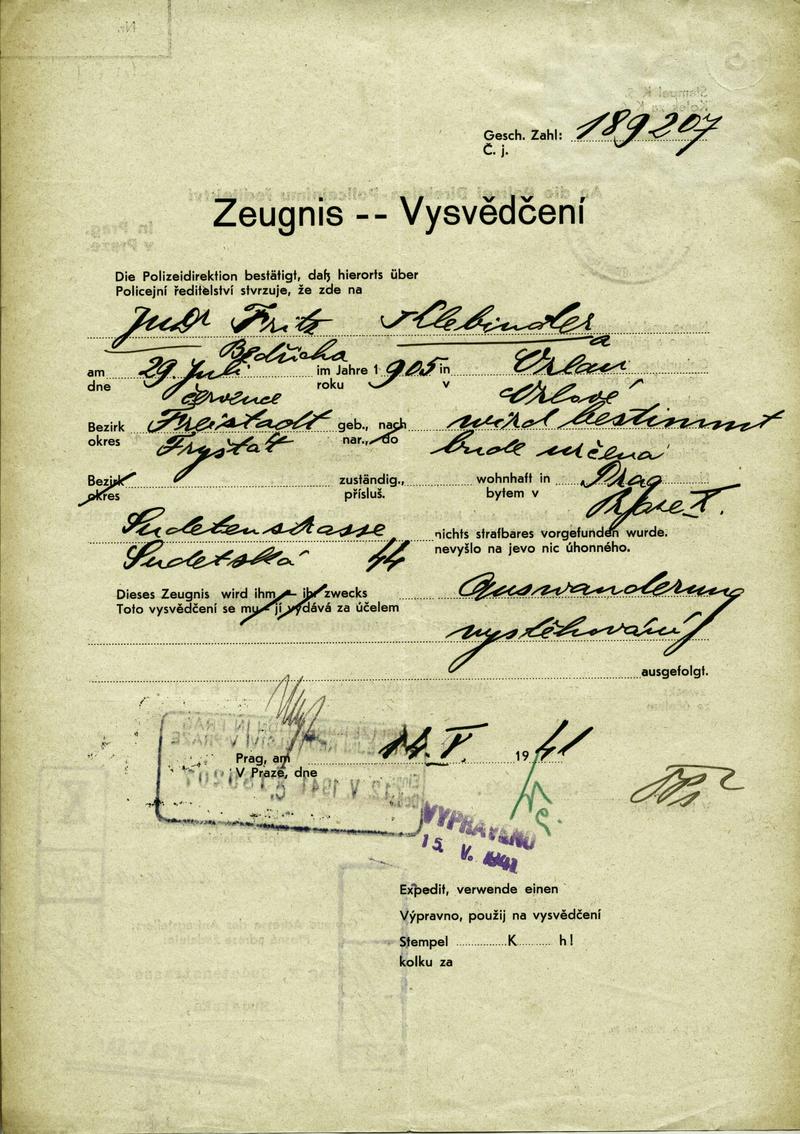 Gesch. Zahl: 189207
Č. j.
Zeugnis -- Vysvědčení
Die Polizeidirektion bestätigt, daß hierorts über
Policejní ředitelství stvrzuje, že zde na
JuDr Fritz Klebinder
Bedřicha a
am 29 Juli im Jahre 1905 in Orlau
dne července roku v Orlové
Bezirk Freistadt geb., nach wird bestimmt
okres Fryštát nar., do bude určena
Bezirk zuständig., wohnhaft in Prag
okres přísluš. bytem v Praze X.
Sudetenstrasse nichts strafbares vorgefunden wurde.
Sudetská 44 nevyšlo na jevo nic úhonného.
Dieses Zeugnis wird ihm – ihr zwecks Auswanderung
Toto vysvědčení se mu – jí vydává za účelem
vystěhování
ausgefolgt.
Prag, am 14. V. 1941
V Praze, dne
VYPRAVENO
15. V. 1941
Expedit, verwende einen
Výpravno, použij na vysvědčení
Stempel K h!
kolku za